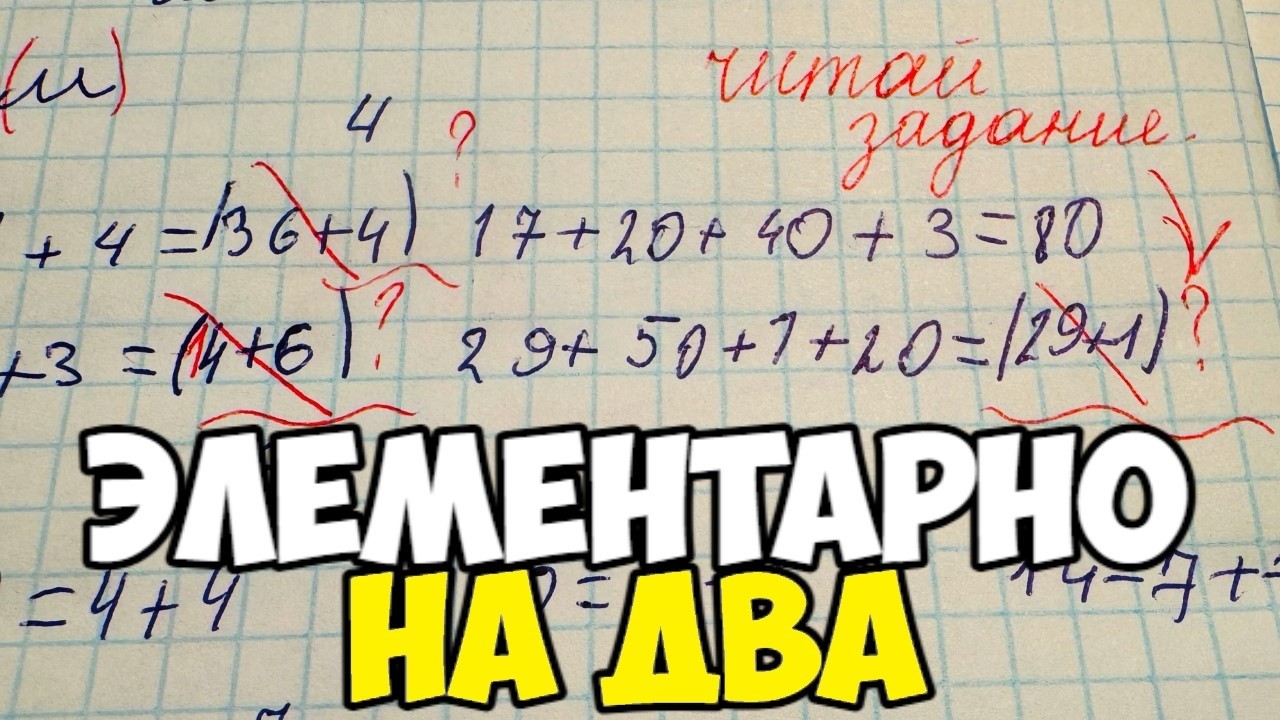 (и)
читай
4 ? задание.
+ 4 = (36+4) 17+20+40+3=80
+3 = (14+6)? 29+50+1+20=(29+1)?
ЭЛЕМЕНТАРНО
=4+4 14-7+
НА ДВА